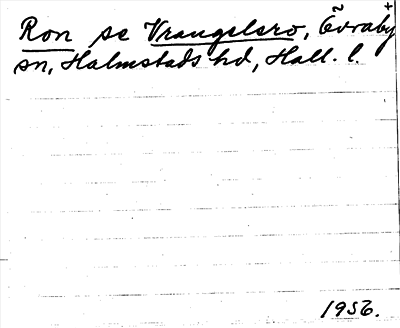 Ron se Vrangelsro, Övraby +
sn, Halmstads hd, Hall. l.
1956.